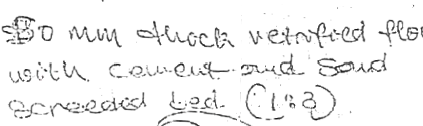 50 mm thick vetrified flo
with cement and sand
screeded bed (1:3)